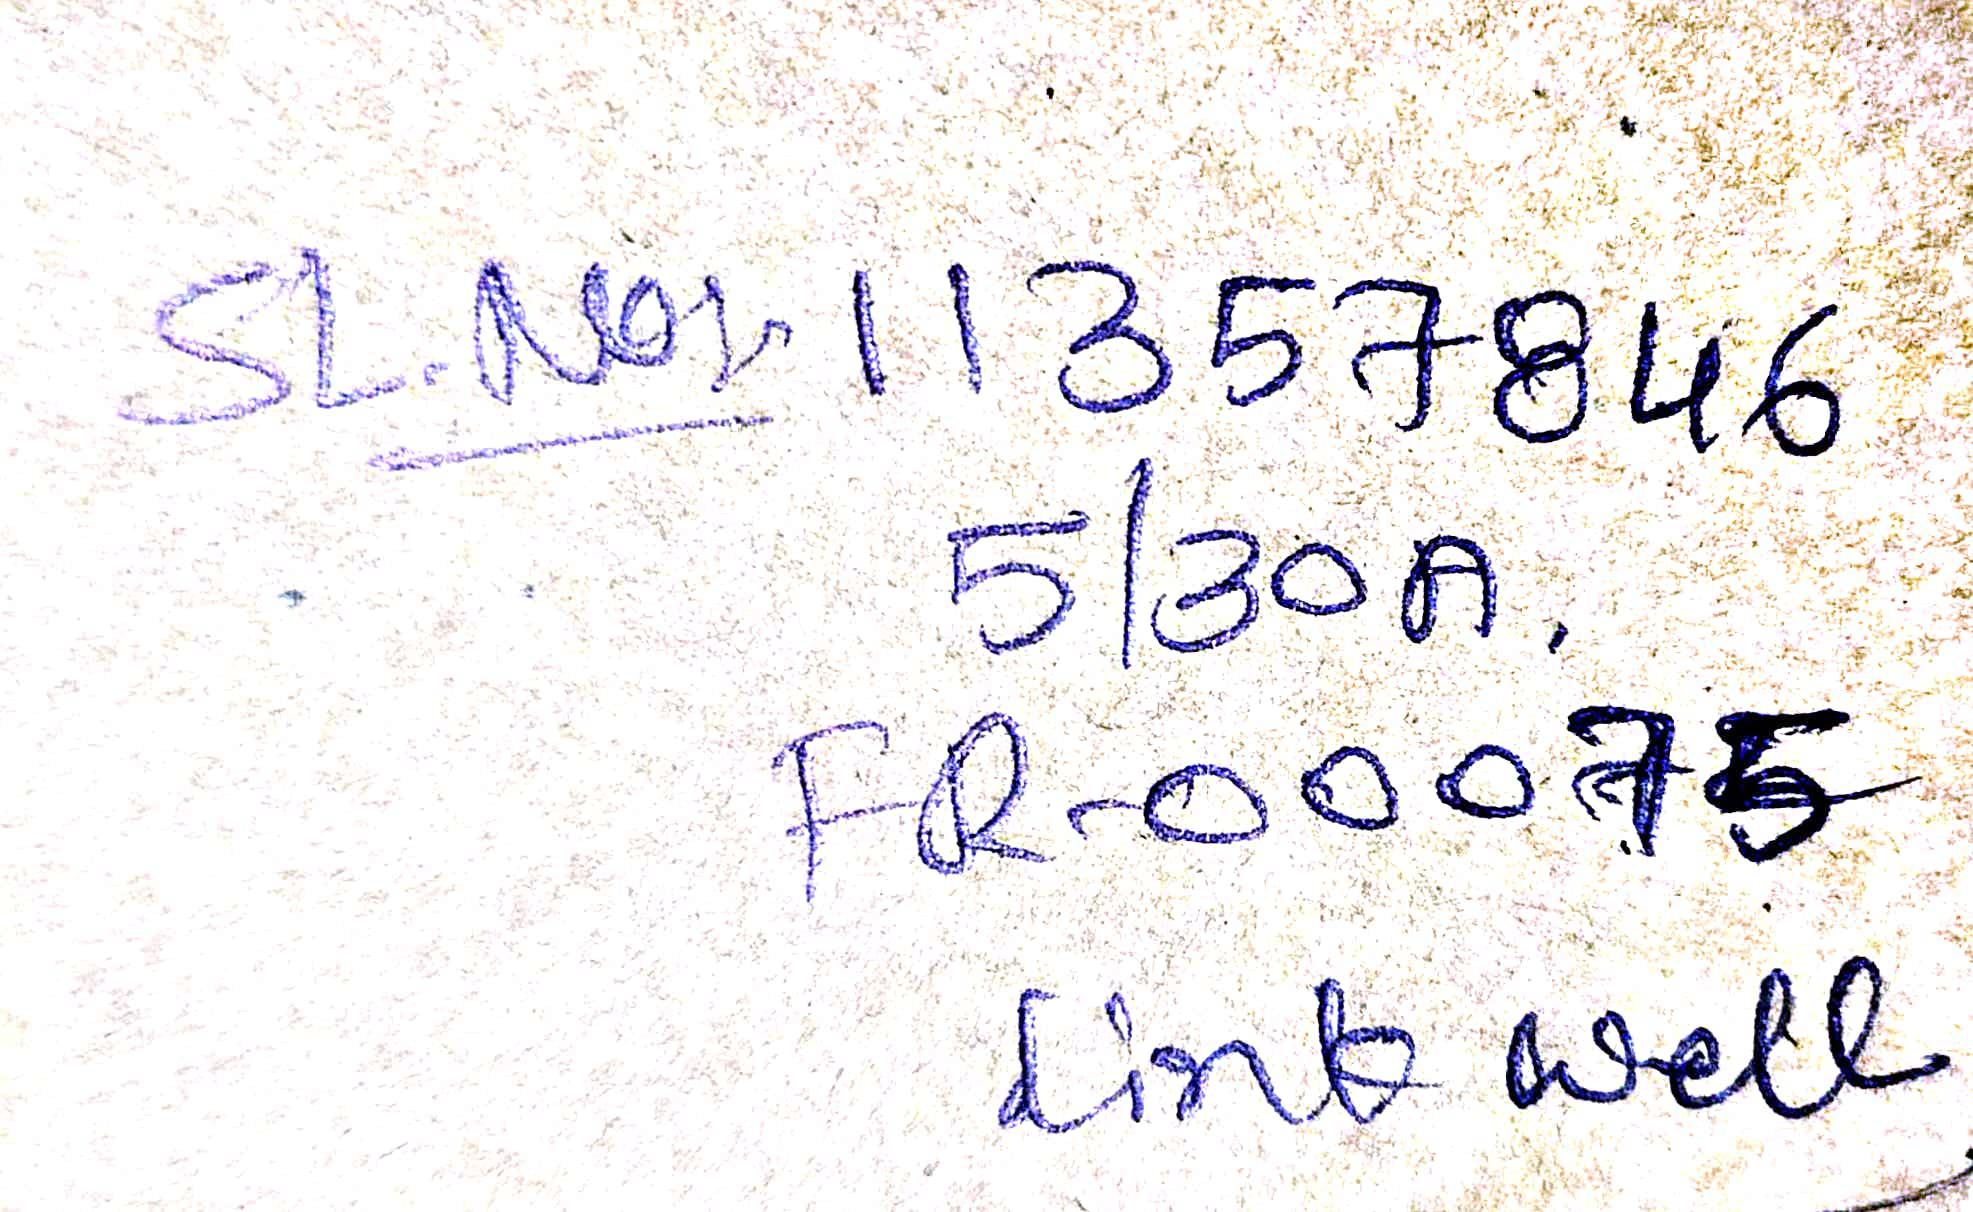 SL.No:, 11357846
5/30A.
FR-00075
Link well